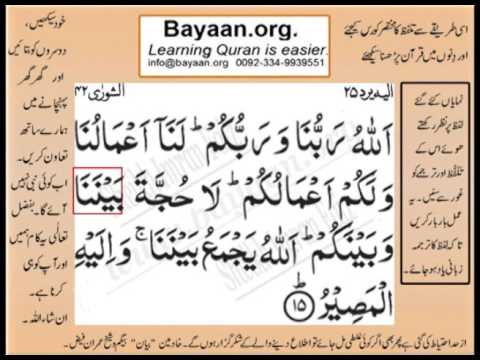 Bayaan.org.
Learning Quran is easier.
info@bayaan.org 0092-334-9939551
اسی طریقے سے تلفظ کا مختصر کورس کیجئے
اور دنوں میں قرآن پڑھنا سیکھئے
الیہ یرد ۲۵
الشورٰی ۴۲
اَللّٰهُ رَبُّنَا وَرَبُّكُمْ ؕ لَنَآ اَعْمَالُنَا
وَلَكُمْ اَعْمَالُكُمْ ؕ لَا حُجَّةَ بَيْنَنَا
وَبَيْنَكُمْ ؕ اَللّٰهُ يَجْمَعُ بَيْنَنَا ۚ وَاِلَيْهِ
الْمَصِيْرُ ؕ ﴿۱۵﴾
نمایاں کئے گئے
لفظ پر نظر رکھتے
ھوئے اس کے
تلفظ اور ترجمے کو
غور سے سنیں۔ یہ
عمل بار بار کریں
تاکہ لفظ کا ترجمہ
زبانی یاد ہو جائے۔
خود سیکھیں،
دوسروں کو بتائیں
اور گھر گھر
پہنچانے میں
ہمارے ساتھ
تعاون کریں۔
اب کوئی نبی نہیں
آئے گا۔ بفضل
تعالٰی یہ کام ہمیں
اور آپ کو ہی
کرنا ہے۔
ان شاء اللہ۔
از حد احتیاط کی گئی ہے پھر بھی اگر کوئی غلطی مل جائے تو اطلاع دینے والے کے شکر گزار ہوں گے۔ خادمین "بیان" بیگم و شیخ عمران فیض۔